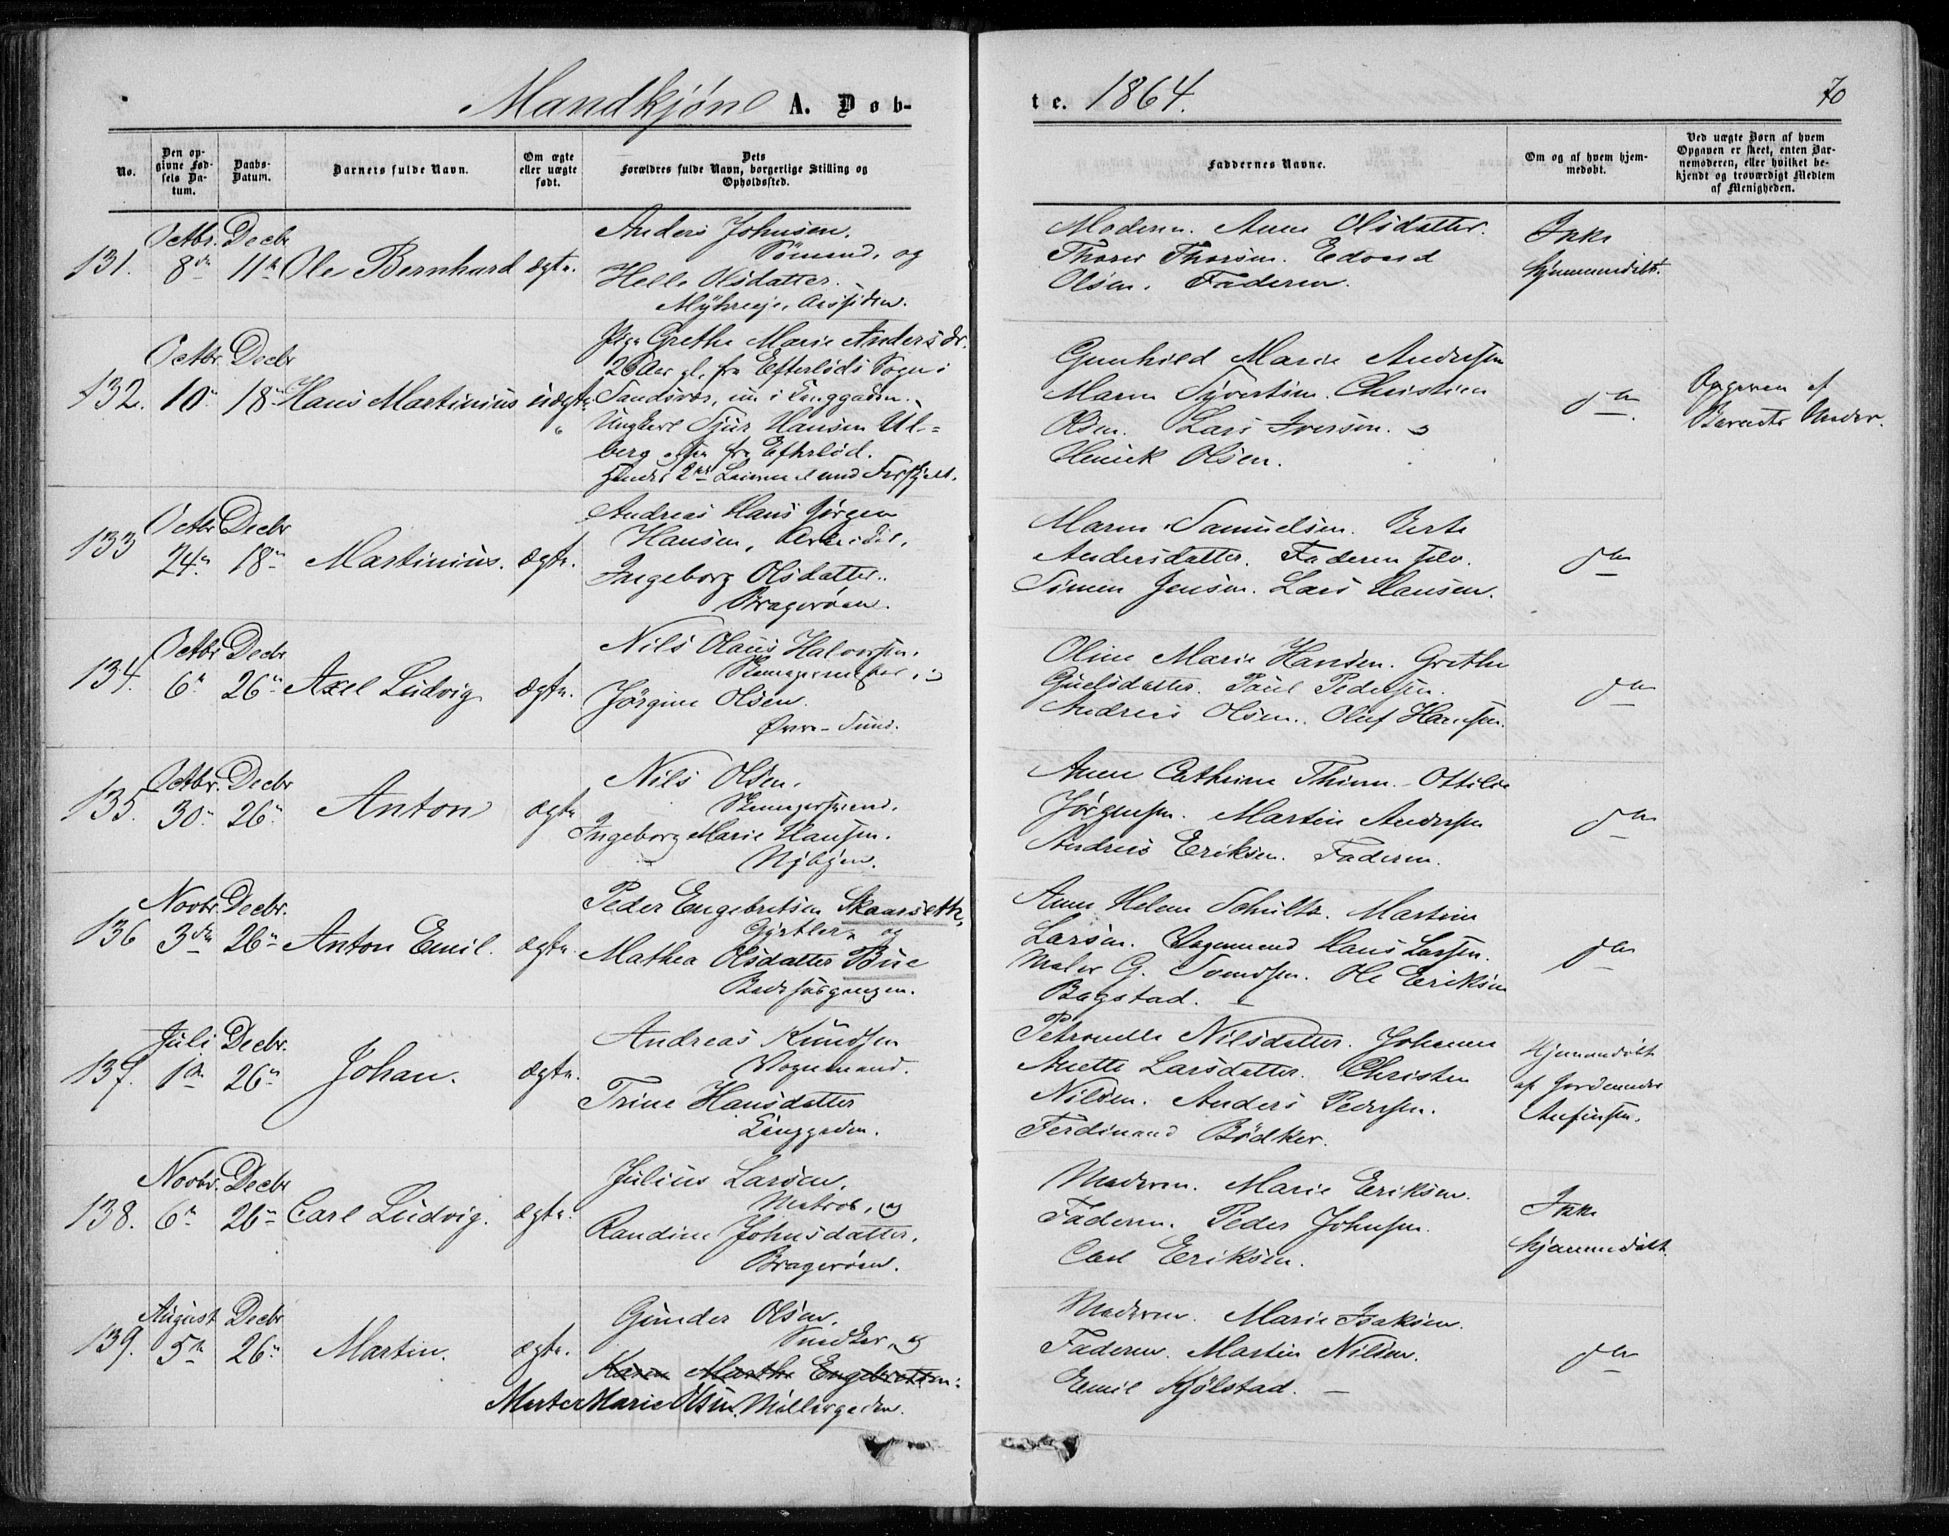 Mandkjøn A. Døb-
te. 1864.
70
No.
Den opgivne Fødsels Datum.
Daabs-Datum.
Barnets fulde Navn.
Om ægte eller uægte født.
Dets Forældres fulde Navn, borgerlige Stilling og Opholdssted.
Faddernes Navne.
Om og af hvem hjemmedøbt.
Ved uægte Børn af hvem Opgaven er skeet, enten Barnemoderen, eller hvilket bekjendt og troværdigt Medlem af Menigheden.
131. Octbr. 8de Decbr 11te Ole Bernhard ægte.
Anders Johnsen.
Sømand, og
Helle Olsdatter.
Moderen. Anne Olsdatter.
Thorer Thorsen. Edvard
Olsen. Faderen.
Ikke
hjemmedøbt.
132. Octbr 10 Decbr 18 Hans Martinius uægte
Pige Grethe Marie Andersdr.
26 Aar gl. fra Efterløds Sogn i
Sandsvær, nu i
Ungkarl Hansen Ul-
berg fra Efterlød.
Gunhild Marie Andersen
Maren Syvertsen. Christian
Olsen. Lars Iversen.
Henrik Olsen.
do
Opgaven af
Barnets Moder.
133 Octbr 24 Decbr 18 Martinius. ægte.
Andreas Hans Jørgen
Hansen, Arbeider,
Ingeborg Olsdatter.
Bragerøen.
Maren Samuelsen. Berte
Andersdatter. Faderen selv.
Simen Jensen. Lars Hansen.
do
134. Octbr 6 Decbr 26 Axel Ludvig ægte.
Nils Olaus Halvorsen.
Jørgine Olsen.
Øvre-Sund.
Oline Marie Hansen. Grethe
Paul Pedersen.
Andreas Olsen. Oluf Hansen.
do
135. Octbr. 30 Decbr 26 Anton ægte
Nils Olsen.
Ingeborg Marie Hansen.
Nybyen.
Anne Cathrine Thinn. Ottilde
Jørgensen. Martin Andersen
Andreas Eriksen. Faderen.
do
136 Novbr. 3de Decbr. 26 Anton Emil. ægte.
Peder Engebretsen Skaarseth,
Gjørtler, og
Mathea Olsdatter Bue
Anne Helene Schultz. Martin
Larsen. Vognmand Hans Larsen.
Maler G. Svendsen. Ole Eriksen
Bagstad.
do
137. Juli 1 Decbr. 26 Johan. ægte.
Andreas Knudsen
Vognmand.
Trine Hansdatter
Petronelle Nilsdatter. Johanne
Anette Larsdatter. Christen
Nilsen. Anders Pedersen.
Ferdinand Bödker.
Hjemmedøbt
af Jordemoder
Anfinsen.
138. Novbr. 6 Decbr 26 Carl Ludvig. ægte.
Julius Larsen.
Matros, og
Randine Johnsdatter.
Bragerøen.
Moderen. Marie Eriksen.
Faderen. Peder Johnsen.
Carl Eriksen.
Ikke
hjemmedøbt
139. August 5 Decbr 26 Martin. ægte.
Gunder Olsen.
Snedker, og
Karen Marthe Engebretsen.
Marie Olsen. Møllergaden.
Moderen. Marie Isaksen.
Faderen. Martin Nilsen.
Emil Kjølstad.
do